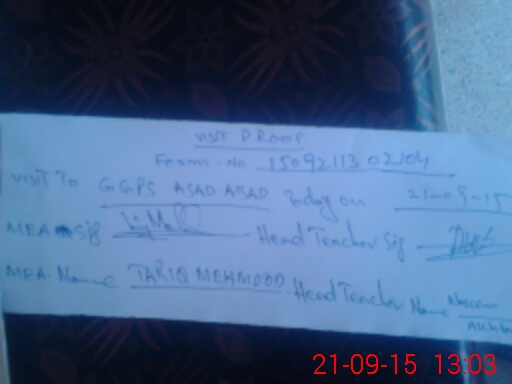 VISIT PROOF
Form-No 15092113 02/04
VISIT To GGPS ASAD ABAD Today on 21-09-15
MEA Sig Head Teacher Sig
MEA Name TARIQ MEHMOOD Head Teacher Name Naseem
Akhtar
21-09-15 13:03